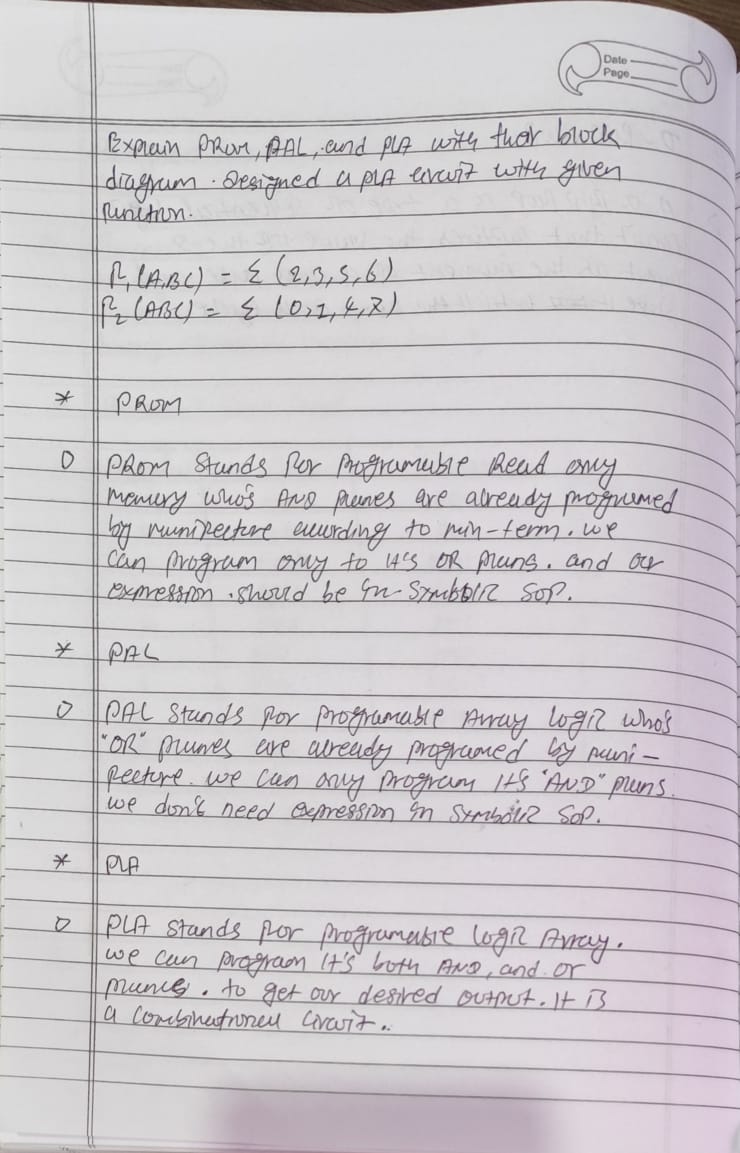 Date
Page
Explain PROM, PAL, and PLA with their block
diagram. Designed a PLA circuit with given
function.
F1 (A,B,C) = Σ (2,3,5,6)
F2 (ABC) = Σ (0,1,4,7)
* PROM
PROM Stands for Programable Read only
memory who's AND planes are already programed
by munifecture according to min-term. we
can program only to it's OR plans. and our
expression. should be in symbolic SOP.
* PAL
PAL Stands for programable Array logic who's
"OR" planes are already programed by muni-
fecture. we can only program it's "AND" plans.
we don't need expression in symbolic SOP.
* PLA
PLA stands for programable logic Array.
we can program it's both AND, and or
planes. to get our desired output. It is
a combinational circuit..